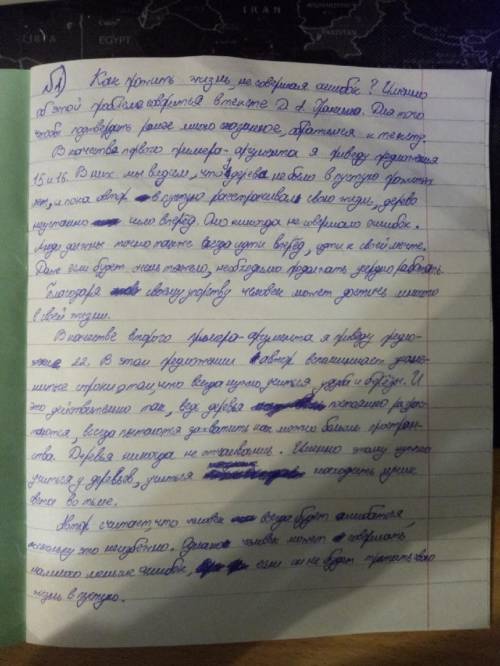 IRAN
EGYPT
№1) Как прожить жизнь, не совершая ошибок? Именно
об этой проблеме говорится в тексте Д. А. Гранина. Для того
чтобы подтвердить ранее мною сказанное, обратимся к тексту.
В качестве первого примера-аргумента я приведу предложения
15 и 16. В них мы видим, что у дерева не было в пустую прожитых
лет, и пока автор в пустую растрачивал свою жизнь, дерево
неустанно шло вперёд. Оно никогда не совершало ошибок.
Люди должны точно также всегда идти вперёд, идти к своей мечте.
Даже если будет очень тяжело, необходимо продолжать упорно работать.
Благодаря своему упорству человек может достичь многого
в своей жизни.
В качестве второго примера-аргумента я приведу предло-
жение 22. В этом предложении автор вспоминает
строки о том, что всегда нужно учиться, у дуба и берёзы. И
это действительно так, ведь деревья постоянно разрас-
таются, всегда пытаются захватить как можно больше простран-
ства. Деревья никогда не отчаивались. Именно этому нужно
учиться у деревьев, учиться находить лучик
света во тьме.
Автор считает, что человек всегда будет ошибаться,
поскольку это неизбежно. Однако человек может совершать
намного меньше ошибок, если он не будет тратить свою
жизнь в пустую.